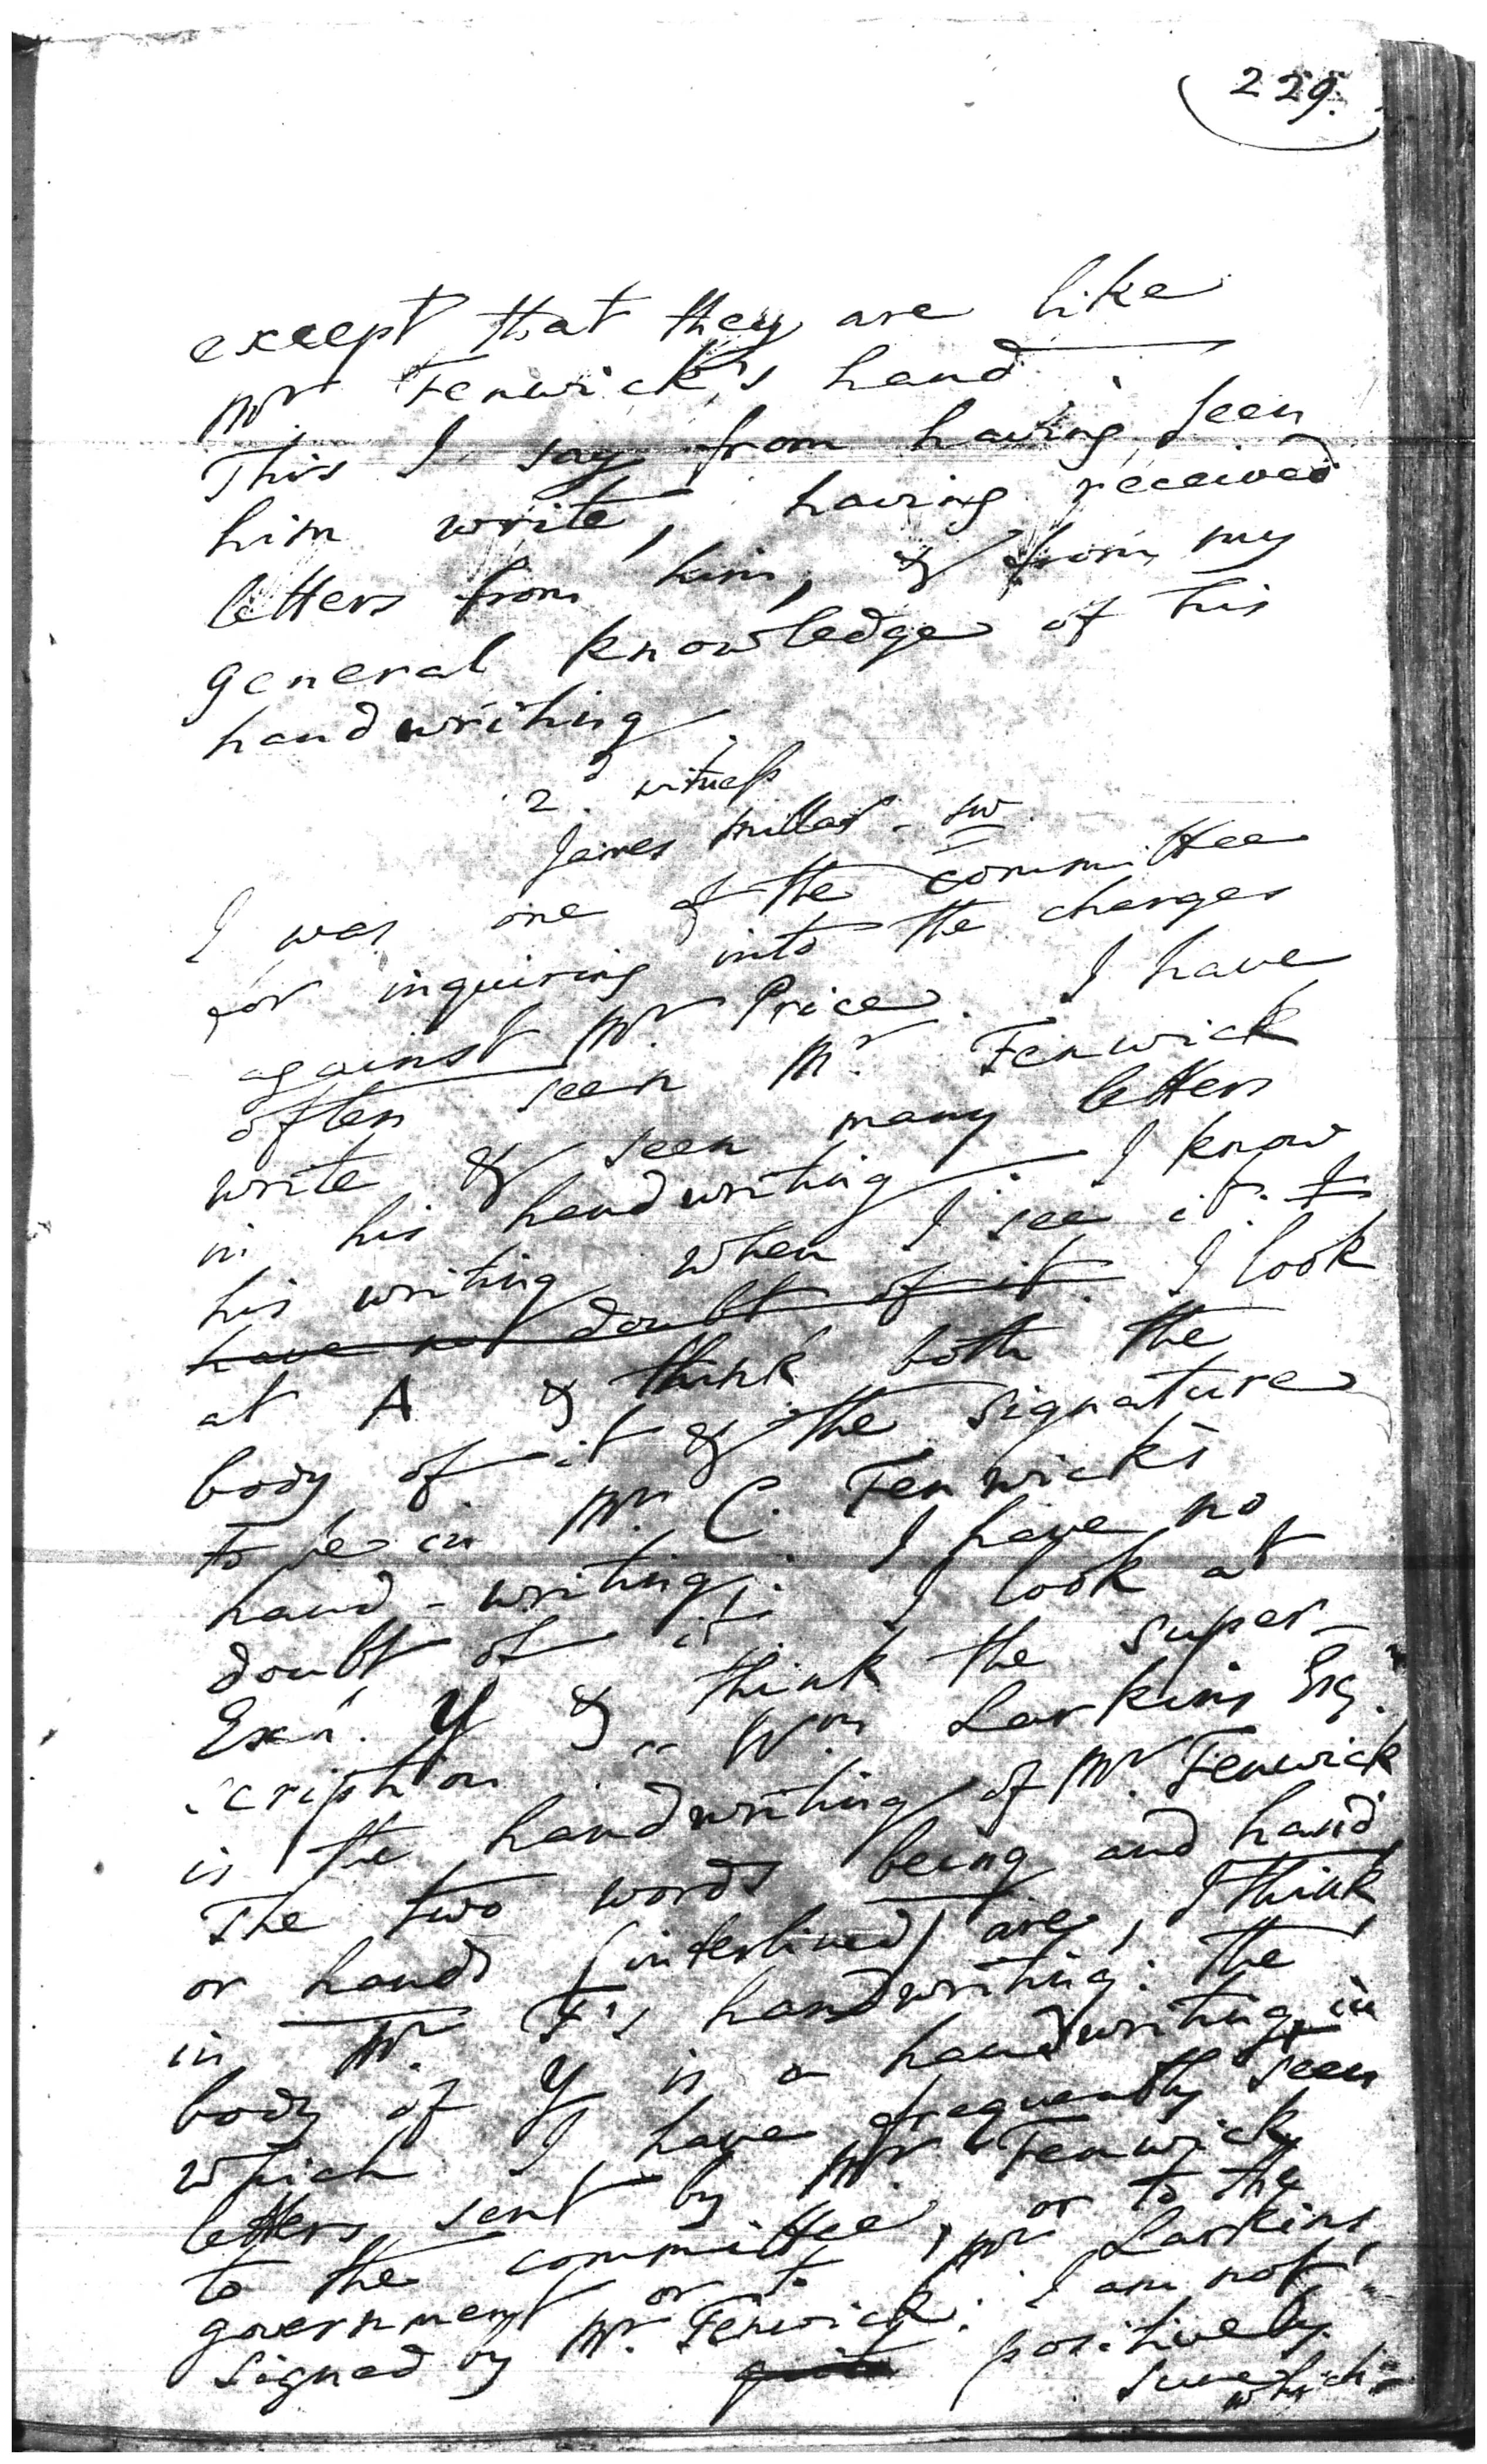 229.
except that they are like
Mr. Fenwick's hand
This I say from having seen
him write, having received
letters from him, & from my
general knowledge of his
handwriting
2d. witness
James Millar - sw.
I was one of the committee
for inquiring into the charges
against Mr. Price. I have
often seen Mr. Fenwick
write & seen many letters
in his handwriting. I know
his writing when I see it. I
have not doubt of it. I look
at A & think both the
body of it & the signature
to be in Mr. C. Fenwick's
hand-writing. I have no
doubt of it. I look at
Exn. Y & think the super-
scription " Wm Larkins Esq."
is the handwriting of Mr. Fenwick
The two words being and hand
or hands (interlined) are, I think,
in Mr. F's handwriting: the
body of Y is a handwriting in
which I have frequently seen
letters sent by Mr. Fenwick
to the committee, or to the
government or to Mr. Larkins,
signed by Mr. Fenwick: I am not
positively
sure which